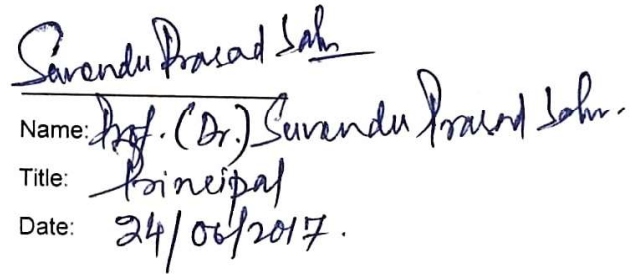 Suvendu Prasad Sahu
Name: Prof. (Dr.) Suvendu Prasad Sahu.
Title: Principal
Date: 24/06/2017.